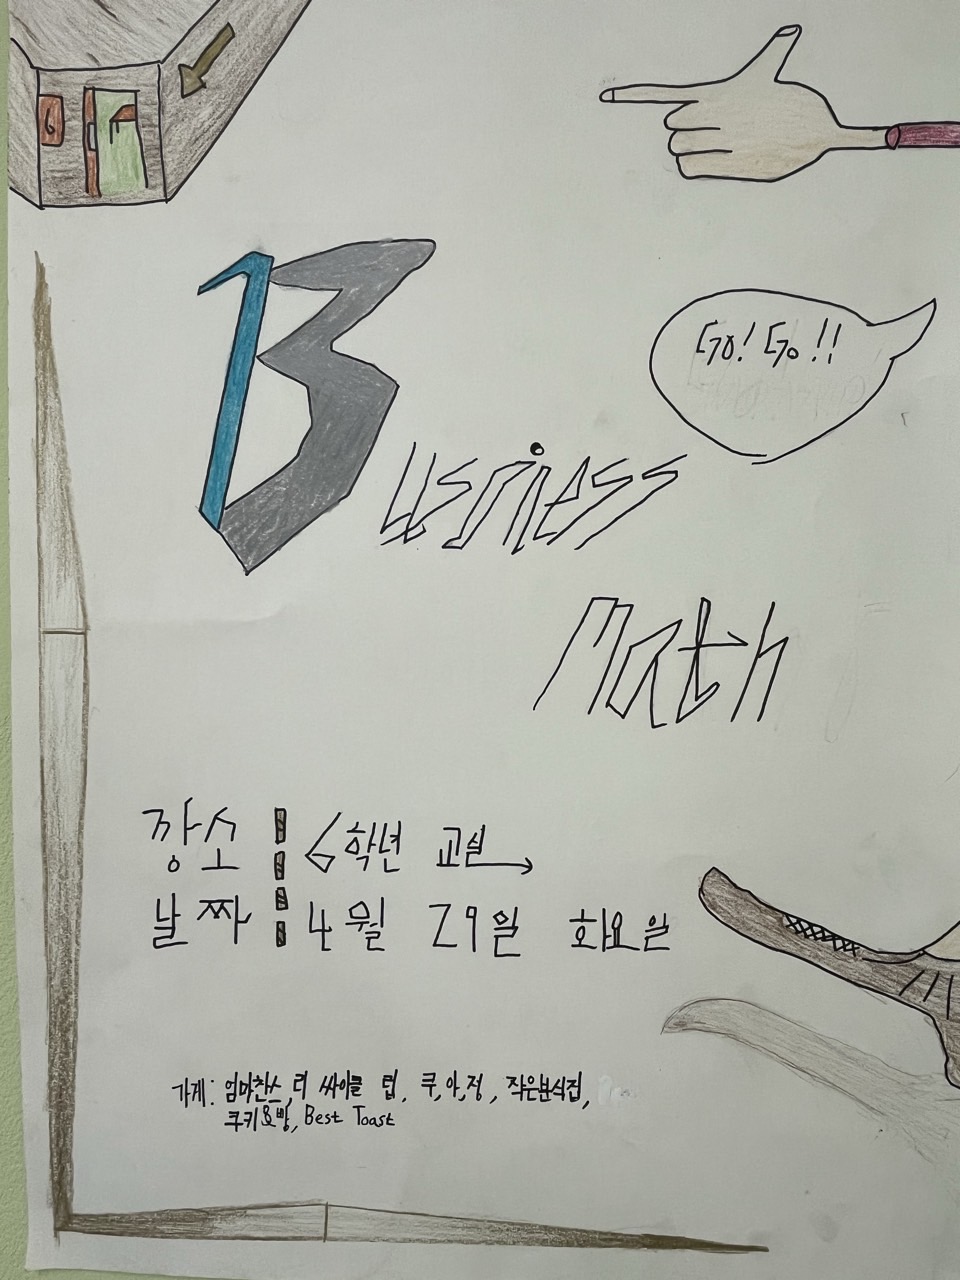 6
Go! Go!!
Busniess
Math
장소 : 6학년 교실
날짜 : 4월 29일 화요일
가게: 엄마찬스, 리 싸이클 럽, 쿠,아,정, 작은분식집,
쿠키요방, Best Toast